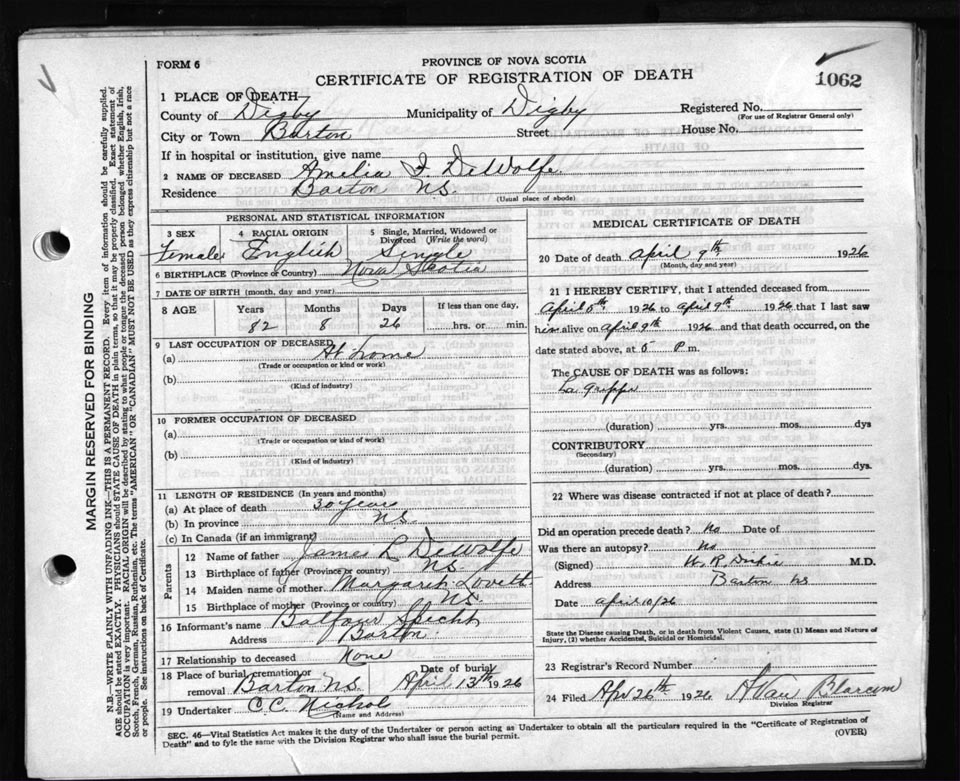 FORM 6
PROVINCE OF NOVA SCOTIA
CERTIFICATE OF REGISTRATION OF DEATH
1062
MARGIN RESERVED FOR BINDING
N.B.—WRITE PLAINLY WITH UNFADING INK—THIS IS A PERMANENT RECORD. Every item of information should be carefully supplied.
AGE should be stated EXACTLY. PHYSICIANS should STATE CAUSE OF DEATH in plain terms, so that it may be properly classified. Exact statement of
OCCUPATION is very important. RACIAL ORIGIN will be described by stating to what people or tongue the deceased person belonged whether English, Irish,
Scotch, French, German, Russian, Ruthenian, etc. The terms "AMERICAN" OR "CANADIAN" MUST NOT BE USED as they express citizenship but not a race
or people. See instructions on back of Certificate.
1 PLACE OF DEATH—
County of Digby Municipality of Digby Registered No.
(For use of Registrar General only)
City or Town Barton Street House No.
If in hospital or institution, give name
2 NAME OF DECEASED Amelia F. DeWolfe
Residence Barton N.S.
(Usual place of abode)
PERSONAL AND STATISTICAL INFORMATION
3 SEX 4 RACIAL ORIGIN 5 Single, Married, Widowed or Divorced (Write the word)
Female English Single
6 BIRTHPLACE (Province or Country) Nova Scotia
7 DATE OF BIRTH (month, day and year)
8 AGE Years Months Days If less than one day,
82 8 26 hrs. or min.
9 LAST OCCUPATION OF DECEASED
(a) At home
(Trade or occupation or kind or work)
(b)
(Kind of industry)
10 FORMER OCCUPATION OF DECEASED
(a)
(Trade or occupation or kind of work)
(b)
(Kind of industry)
11 LENGTH OF RESIDENCE (In years and months)
(a) At place of death 30 years
(b) In province N.S.
(c) In Canada (if an immigrant)
Parents
12 Name of father James R DeWolfe
13 Birthplace of father (Province or country) N.S.
14 Maiden name of mother Margaret Lovett
15 Birthplace of mother (Province or country) N.S.
16 Informant's name Balfour Specht
Address Barton
17 Relationship to deceased None
18 Place of burial, cremation or removal Barton N.S. Date of burial April 13th 1926
19 Undertaker C. C. Nichol
(Name and Address)
MEDICAL CERTIFICATE OF DEATH
20 Date of death April 9th 1926
(Month, day and year)
21 I HEREBY CERTIFY, that I attended deceased from
April 8th 1926 to April 9th 1926 that I last saw
h alive on April 9th 1926 and that death occurred, on
date stated above, at 5 P.m.
The CAUSE OF DEATH was as follows:
La Grippe
(duration) yrs. mos. dys
CONTRIBUTORY
(Secondary)
(duration) yrs. mos. dys.
22 Where was disease contracted if not at place of death?
Did an operation precede death? No Date of
Was there an autopsy? No
(Signed) W. R. M.D.
Address Barton NS
Date April 10/26
State the Disease causing Death, or in death from Violent Causes, state (1) Means and Nature of
Injury, (2) whether Accidental, Suicidal or Homicidal.
23 Registrar's Record Number
24 Filed Apr 26th 1926 A Van Blarcom
Division Registrar
SEC. 46—Vital Statistics Act makes it the duty of the Undertaker or person acting as Undertaker to obtain all the particulars required in the "Certificate of Registration of
Death" and to fyle the same with the Division Registrar who shall issue the burial permit.
(OVER)